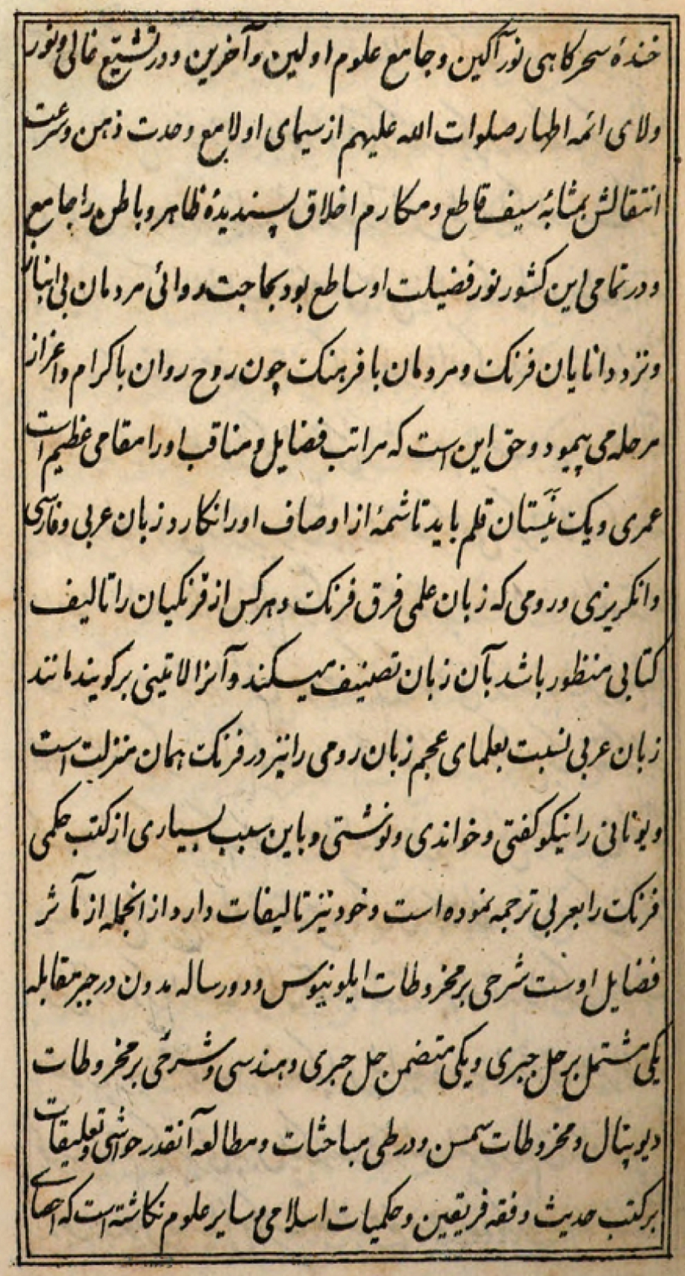 خندهٔ سحرکاهی نورآکین و جامع علوم اولین و آخرین و در تشیّع غالی و نور
ولای ائمه اطهار صلوات الله علیهم از سیمای او لامع وحدت ذهن و سرعت
انتقالش بمثابهٔ سیف قاطع و مکارم اخلاق پسندیدهٔ ظاهر و باطن را جامع
و در تمامی این کشور نور فضیلت او ساطع بود بحاجت روائی مردمان بی انباز
و نزد دانایان فرنک و مردمان با فرهنک چون روح روان باکرام و اعزاز
مرحله می پیمود و حق این است که مراتب فضایل و مناقب او را مقامی عظیم است
عمری و یک نیستان قلم باید تا شمهٔ از اوصاف او را نکارد زبان عربی و فارسی
وانکریزی و رومی که زبان علمی فرق فرنک و هرکس از فرنکیان را تالیف
کتابی منظور باشد بآن زبان تصنیف میکند و آنرا لاتینی برکویند مانند
زبان عربی نسبت بعلمای عجم زبان رومی را نیز در فرنک همان منزلت است
و یونانی را نیکو کفتی و خواندی و نوشتی و باین سبب بسیاری از کتب حکمی
فرنک را بعربی ترجمه نموده است و خود نیز تالیفات دارد از انجمله از مآثر
فضایل اوست شرحی بر مخروطات ابلونیوس و دو رساله مدون در جبر مقابله
یکی مشتمل بر حل جبری و یکی متضمن حل جبری و هندسی و شرحی بر مخروطات
دیوپتال و مخروطات سمسن و در طی مباحثات و مطالعه آنقدر حواشی و تعلیقات
بر کتب حدیث و فقه فریقین و حکمیات اسلامی و سایر علوم نکاشته است که احصای